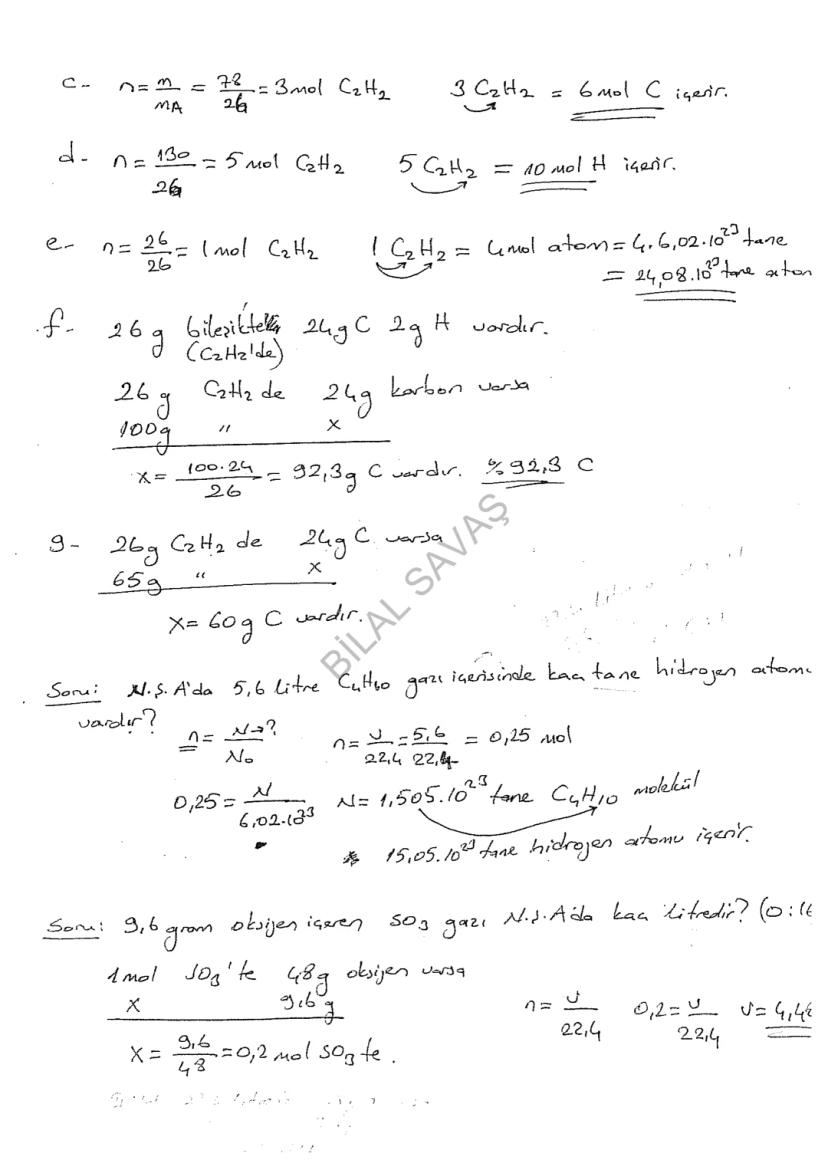 c- n = m/MA = 78/26 = 3mol C2H2 3 C2H2 = 6mol C içerir.
d- n = 130/26 = 5 mol C2H2 5 C2H2 = 10 mol H içerir.
e- n = 26/26 = 1 mol C2H2 1 C2H2 = 4mol atom = 4.6,02.10^23 tane
= 24,08.10^23 tane atom
f- 26g bileşikte 24g C 2g H vardır.
(C2H2'de)
26g C2H2 de 24g karbon varsa
100g " x
x = 100.24/26 = 92,3g C vardır. %92,3 C
g- 26g C2H2 de 24g C varsa
65g " x
x = 60g C vardır.
BİLAL SAVAŞ
Soru: N.Ş.A'da 5,6 litre C4H10 gazı içerisinde kaç tane hidrojen atomu
vardır?
n = N→?/N0 n = v/22,4 = 5,6/22,4 = 0,25 mol
0,25 = N/6,02.10^23 N = 1,505.10^23 tane C4H10 molekül
* 15,05.10^23 tane hidrojen atomu içerir.
Soru: 9,6 gram oksijen içeren SO3 gazı N.Ş.A'da kaç litredir? (O:16
1mol SO3'te 48g oksijen varsa
x 9,6g
n = v/22,4 0,2 = v/22,4 v = 4,48
x = 9,6/48 = 0,2 mol SO3 te.